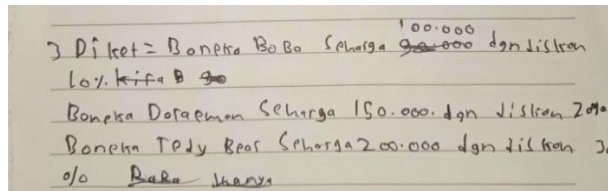 100.000
3 Diket = Boneka BoBo Seharga 90.000 dgn diskon
10% kita 90
Boneka Doraemon Seharga 150.000. dgn diskon 20%
Boneka Tedy Bear Seharga 200.000 dgn diskon 3
0/0